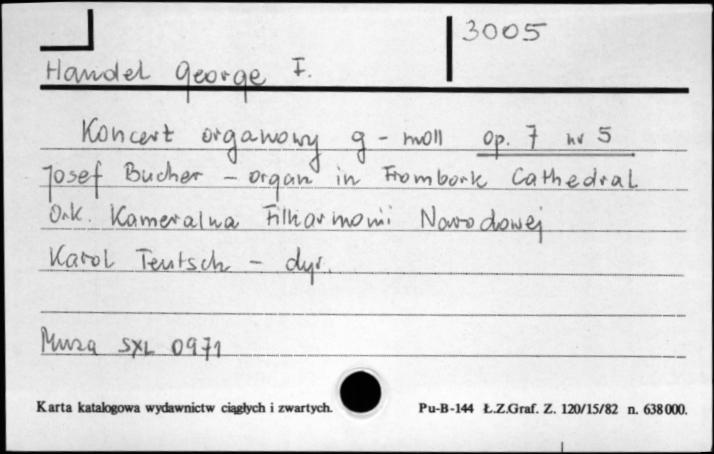 3005
Handel George F.
Koncert organowy g-moll op. 7 nr 5
Josef Bucher - organ in Frombork Cathedral
Ork. Kameralna Filharmonii Narodowej
Karol Teutsch - dyr.
Muza SXL 0971
Karta katalogowa wydawnictw ciągłych i zwartych. Pu-B-144 Ł.Z.Graf. Z. 120/15/82 n. 638000.